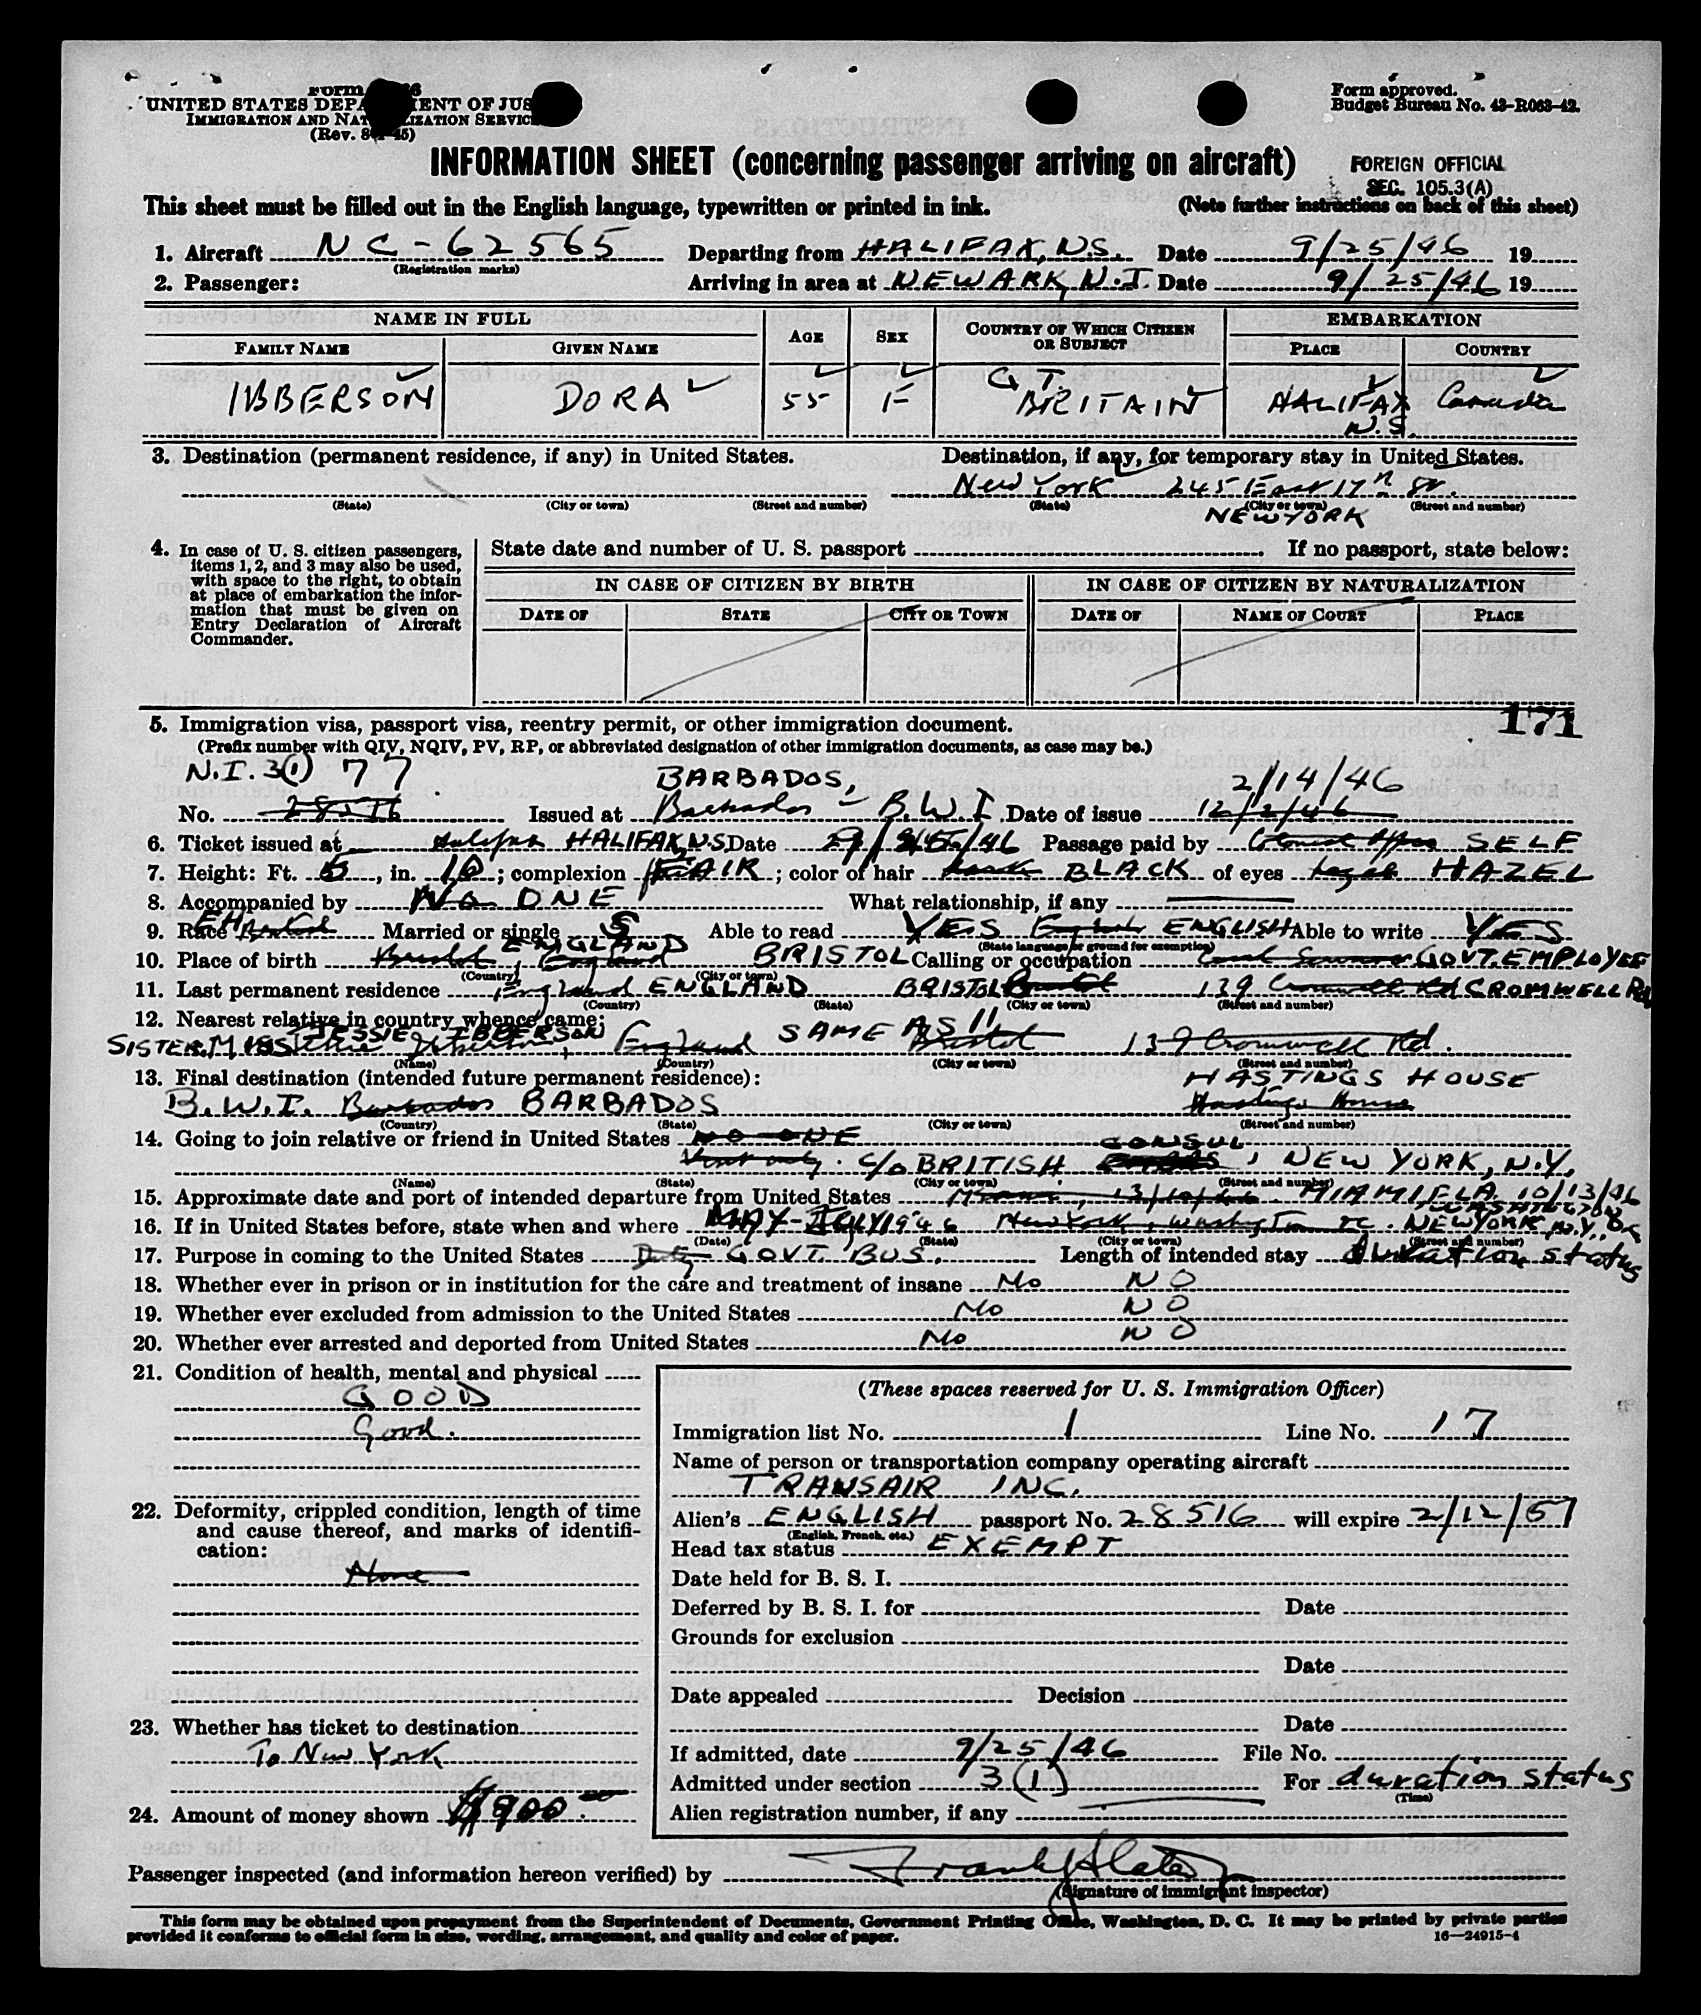 UNITED STATES DEPA ENT OF JUS
IMMIGRATION AND NAT LIZATION SERVIC
Form approved.
Budget Bureau No. 43-R063-42.
INFORMATION SHEET (concerning passenger arriving on aircraft)
FOREIGN OFFICIAL
SEC. 105.3(A)
This sheet must be filled out in the English language, typewritten or printed in ink. (Note further instructions on back of this sheet)
1. Aircraft NC-62565 Departing from HALIFAX, N.S. Date 9/25/46 19
(Registration marks)
2. Passenger: Arriving in area at NEWARK, N.J. Date 9/25/46 19
NAME IN FULL AGE SEX COUNTRY OF WHICH CITIZEN OR SUBJECT EMBARKATION
FAMILY NAME GIVEN NAME PLACE COUNTRY
IBBERSON DORA 55 F GT. BRITAIN HALIFAX N.S. Canada
3. Destination (permanent residence, if any) in United States. Destination, if any, for temporary stay in United States.
New York 245 East 17th St.
(State) (City or town) (Street and number) (State) (City or town) (Street and number)
NEW YORK
4. In case of U. S. citizen passengers, items 1, 2, and 3 may also be used, with space to the right, to obtain at place of embarkation the information that must be given on Entry Declaration of Aircraft Commander.
State date and number of U. S. passport If no passport, state below:
IN CASE OF CITIZEN BY BIRTH IN CASE OF CITIZEN BY NATURALIZATION
DATE OF STATE CITY OR TOWN DATE OF NAME OF COURT PLACE
171
5. Immigration visa, passport visa, reentry permit, or other immigration document.
(Prefix number with QIV, NQIV, PV, RP, or abbreviated designation of other immigration documents, as case may be.)
N.I. 3(1) 77 BARBADOS, 2/14/46
No. 28516 Issued at Barbados - B.W.I. Date of issue 12/2/46
6. Ticket issued at Halifax HALIFAX, N.S. Date 9/25/46 Passage paid by SELF
7. Height: Ft. 5, in. 10; complexion FAIR; color of hair BLACK of eyes HAZEL
8. Accompanied by No ONE What relationship, if any
9. Race British Married or single S Able to read YES English ENGLISH Able to write YES
(State language or ground for exemption)
10. Place of birth Bristol England ENGLAND BRISTOL Calling or occupation GOVT. EMPLOYEE
(Country) (City or town)
11. Last permanent residence England ENGLAND BRISTOL Bristol 139 Cromwell Rd CROMWELL Rd
(Country) (State) (City or town) (Street and number)
12. Nearest relative in country whence came:
SISTER, MISS JESSIE IBBERSON England SAME AS 11 Bristol 139 Cromwell Rd.
(Name) (Country) (City or town) (Street and number)
13. Final destination (intended future permanent residence): HASTINGS HOUSE
B.W.I. Barbados BARBADOS Hastings House
(Country) (State) (City or town) (Street and number)
14. Going to join relative or friend in United States NO ONE
c/o BRITISH CONSUL, NEW YORK, N.Y.
(Name) (State) (City or town) (Street and number)
15. Approximate date and port of intended departure from United States Miami, 13/10/46. MIAMI FLA. 10/13/46
16. If in United States before, state when and where MAY-JULY 1946 New York, Washington DC. NEW YORK, N.Y., WASHINGTON DC
(Date) (State) (City or town) (Street and number)
17. Purpose in coming to the United States Duty GOVT. BUS. Length of intended stay duration status
18. Whether ever in prison or in institution for the care and treatment of insane No NO
19. Whether ever excluded from admission to the United States No NO
20. Whether ever arrested and deported from United States No NO
21. Condition of health, mental and physical
GOOD
Good.
22. Deformity, crippled condition, length of time and cause thereof, and marks of identification:
None
23. Whether has ticket to destination
To New York
24. Amount of money shown $900.00
(These spaces reserved for U. S. Immigration Officer)
Immigration list No. 1 Line No. 17
Name of person or transportation company operating aircraft
TRANSAIR INC.
Alien's ENGLISH passport No. 28516 will expire 2/12/51
(English, French, etc.)
Head tax status EXEMPT
Date held for B. S. I.
Deferred by B. S. I. for Date
Grounds for exclusion
Date
Date appealed Decision
Date
If admitted, date 9/25/46 File No.
Admitted under section 3(1) For duration status
(Time)
Alien registration number, if any
Passenger inspected (and information hereon verified) by
(Signature of immigrant inspector)
This form may be obtained upon prepayment from the Superintendent of Documents, Government Printing Office, Washington, D. C. It may be printed by private parties
provided it conforms to official form in size, wording, arrangement, and quality and color of paper.
16—24915-4